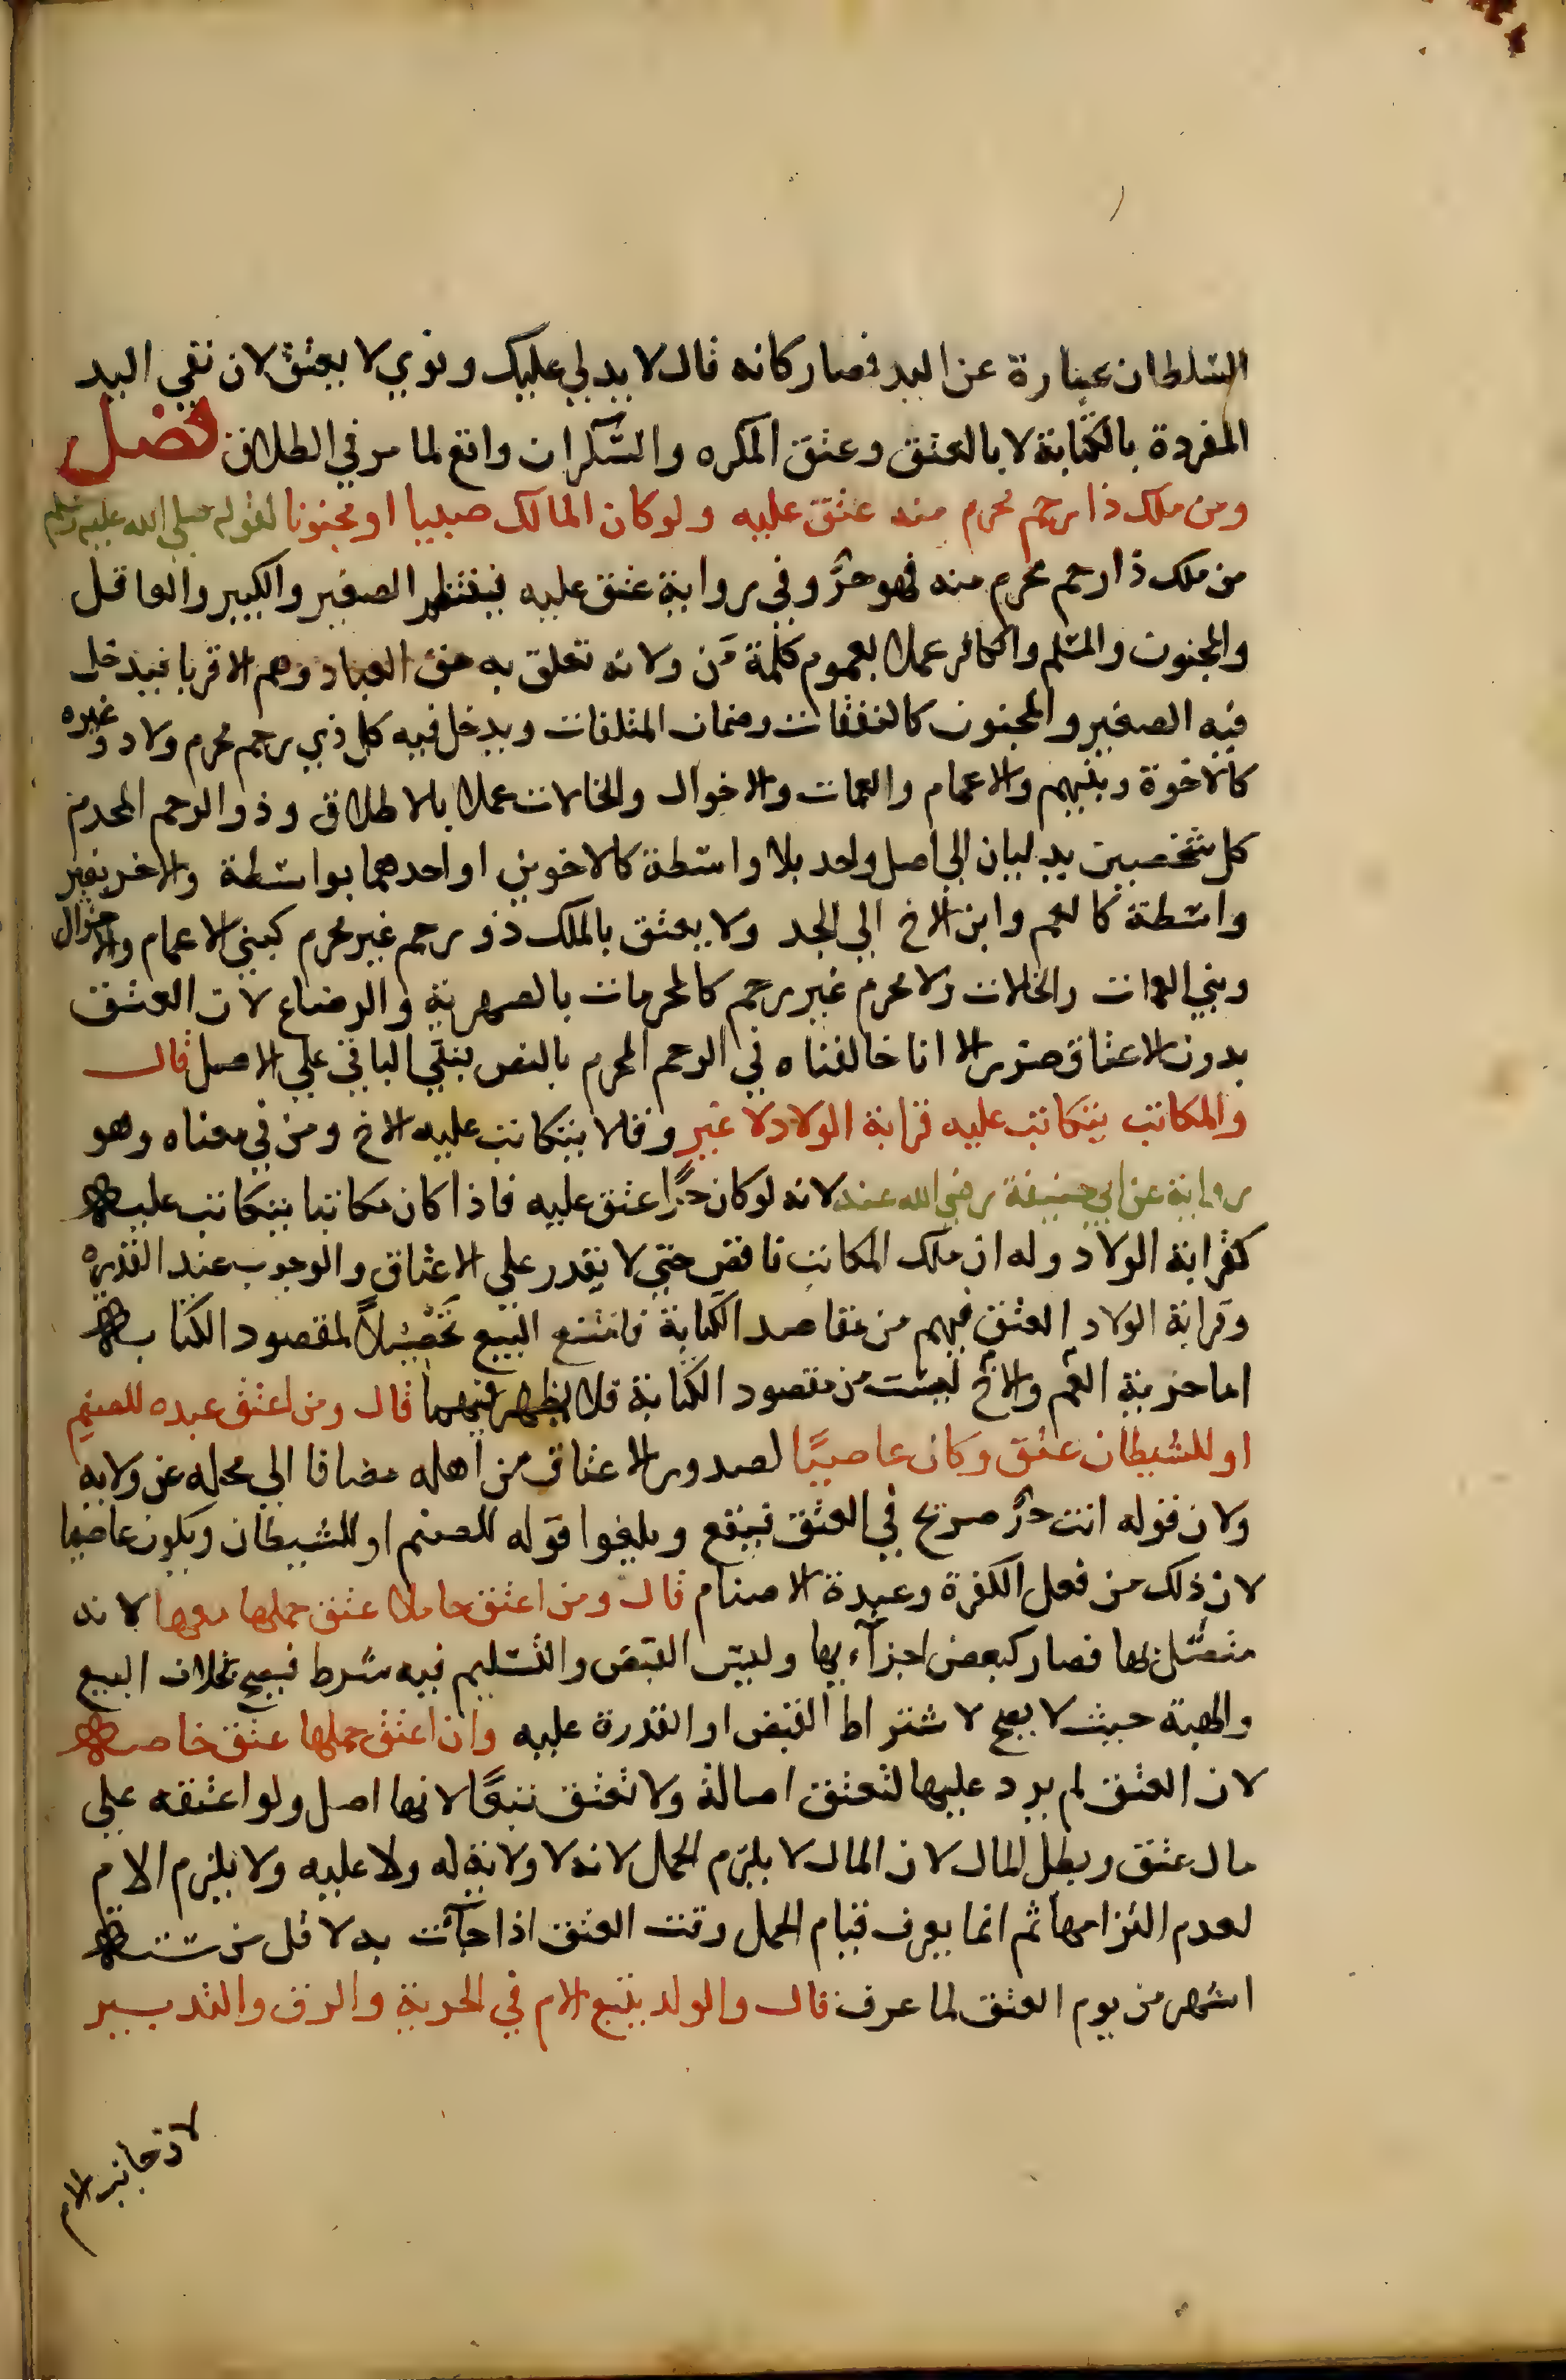 السلطان عبارة عن اليد فصار كانه قال لا يد لي عليك ونوي لا يعتق لان نفي اليد
المفردة بالكتابة لا بالعتق وعتق المكره والسكران واقع لما مر في الطلاق فصل
ومن ملك ذا رحم محرم منه عتق عليه ولو كان المالك صبيا او مجنونا لقوله صلي الله عليه وسلم
من ملك ذا رحم محرم منه فهو حرٌّ وفي رواية عتق عليه فينتظم الصغير والكبير والعاقل
والمجنون والمسلم والكافر عملا بعموم كلمة مَن ولانه تعلق به حق العباد وهم الاقربا فيدخل
فيه الصغير والمجنون كالنفقات وضمان المتلفات ويدخل فيه كل ذي رحم محرم ولاد وغيره
كالاخوة وبنيهم والاعمام والعمات والاخوال والخالات عملا بالاطلاق وذو الرحم المحرم
كل شخصين يدليان الي اصل واحد بلا واسطة كالاخوين او احدهما بواسطة والاخر بغير
واسطة كالعم وابن الاخ الي الجد ولا يعتق بالملك ذو رحم غير محرم كبني الاعمام والاخوال
وبني العمات والخالات ولا محرم غير رحم كالمحرمات بالصهرية والرضاع لان العتق
بدون الاعتاق ضرر الا انا خالفناه في الرحم المحرم بالنص بقي الباقي علي الاصل قال
والمكاتب يتكاتب عليه قرابة الولاد لا غير وقالا يتكاتب عليه الاخ ومن في معناه وهو
رواية عن ابي حنيفة رضي الله عنه لانه لو كان حرًّا عتق عليه فاذا كان مكاتبا يتكاتب عليه
كقرابة الولاد وله ان ملك المكاتب ناقص حتي لا يقدر علي الاعتاق والوجوب عند القدرة
وقرابة الولاد العتق فيهم من مقاصد الكتابة فامتنع البيع تَحْصِيلًا لمقصود الكتابة
اما حرية العم والاخ ليست من مقصود الكتابة فلا يظهر فيهما قال ومن اعتق عبده للصنم
او للشيطان عتق وكان عاصيًا لصدور الاعتاق من اهله مضافا الي محله عن ولاية
ولان قوله انت حرٌّ صريح في العتق فيقع ويلغوا قوله للصنم او للشيطان ويكون عاصيا
لان ذلك من فعل الكفرة وعبدة الاصنام قال ومن اعتق حاملا عتق حملها معها لانه
متصل بها فصار كبعض اجزآءيها وليس القبض والتسليم فيه شرط فيصح بخلاف البيع
والهبة حيث لا يصح لاشتراط القبض او القدرة عليه وان اعتق حملها عتق خاصة
لان العتق لم يرد عليها لتعتق اصالة ولا تعتق تبعًا لانها اصل ولو اعتقه علي
مال عتق وبطل المال لان المال لا يلزم الحمل لانه لا ولاية له ولا عليه ولا يلزم الام
لعدم التزامها ثم انما يعرف قيام الحمل وقت العتق اذا جآئت به لاقل من ستة
اشهر من يوم العتق لما عرف قال والولد يتبع الام في الحرية والرق والتدبير
لان جانب الام